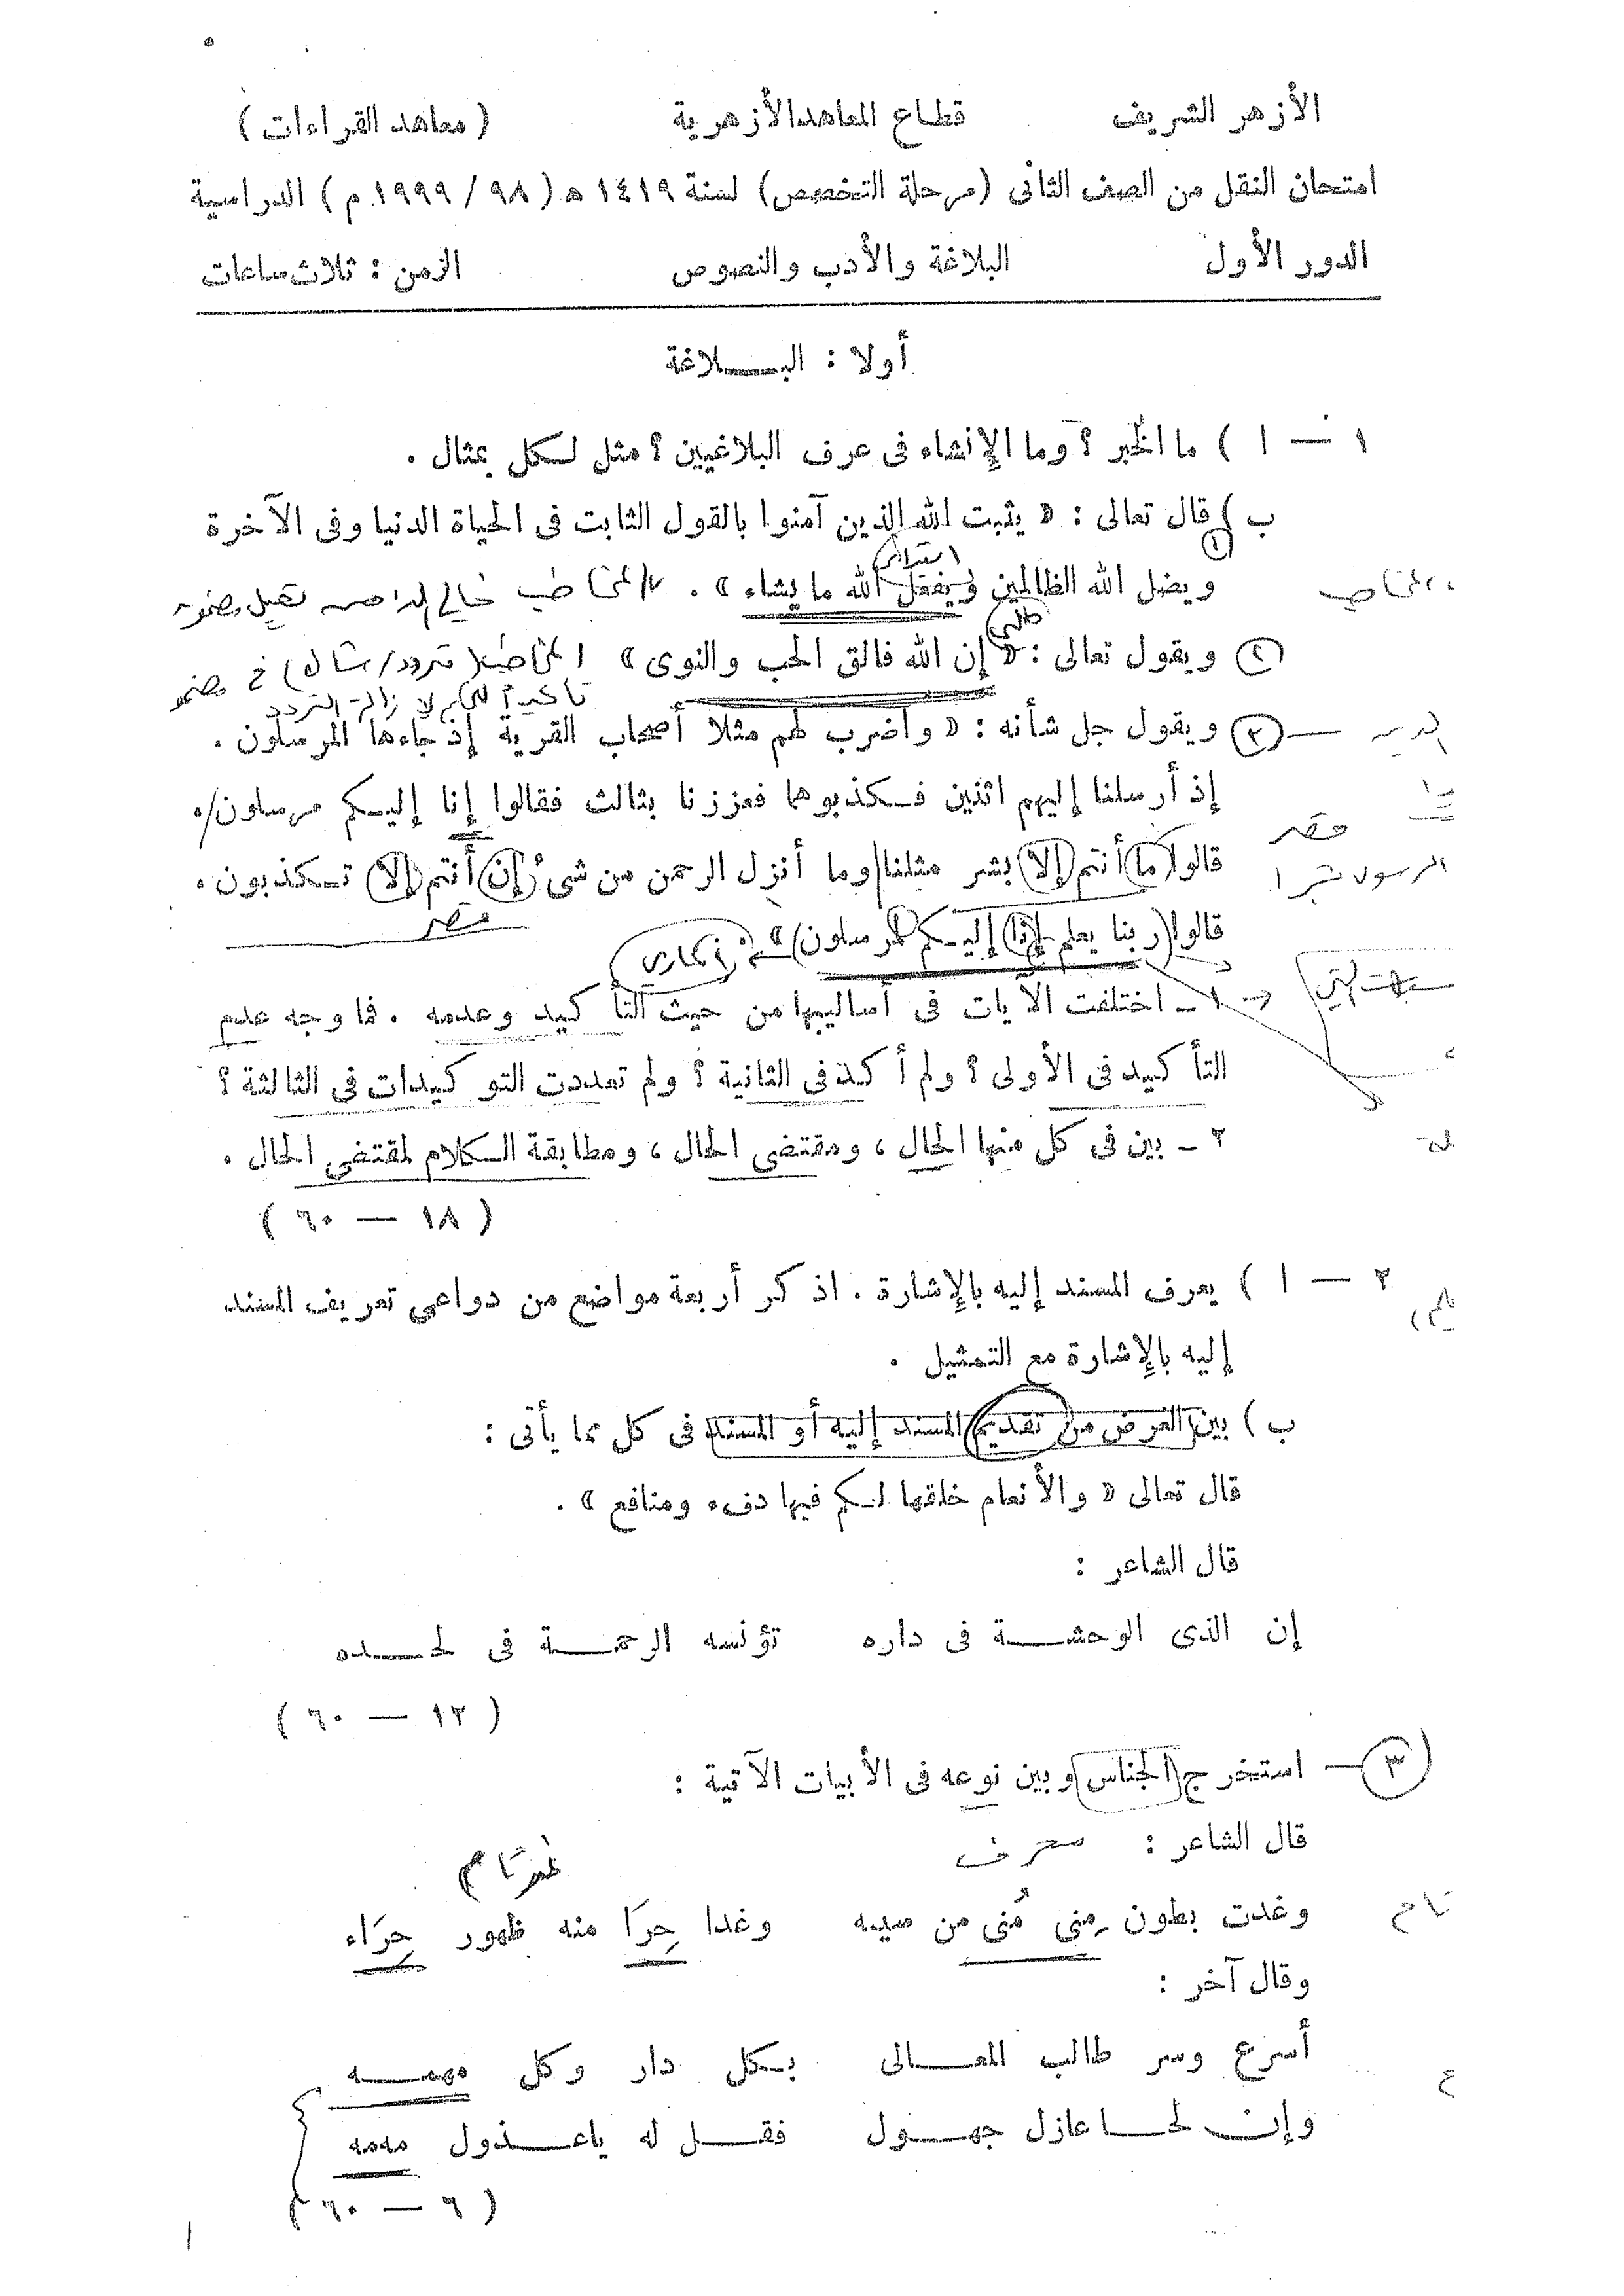 الأزهر الشريف قطاع المعاهد الأزهرية ( معاهد القراءات )
امتحان النقل من الصف الثانى (مرحلة التخصص) لسنة ١٤١٩ ه ( ٩٨ / ١٩٩٩ م ) الدراسية
الدور الأول البلاغة والأدب والنصوص الزمن : ثلاث ساعات
أولا : البـلاغة
١ — ا ) ما الخبر ؟ وما الإنشاء فى عرف البلاغيين ؟ مثل لكل بمثال .
ب ) قال تعالى : « يثبت الله الذين آمنوا بالقول الثابت فى الحياة الدنيا وفى الآخرة
١ ابتدائى
ويضل الله الظالمين ويفعل الله ما يشاء » . المخاطب خالي الذهن
المخاطب
طلبي
٢ ويقول تعالى : « إن الله فالق الحب والنوى » المخاطب (متردد/شاك) في
تأكيداً للحكم لإزالة التردد
٣ — ويقول جل شأنه : « واضرب لهم مثلا أصحاب القرية إذ جاءها المرسلون .
إذ أرسلنا إليهم اثنين فكذبوهما فعززنا بثالث فقالوا إنا إليكم مرسلون .
قصر
قالوا ما أنتم إلا بشر مثلنا وما أنزل الرحمن من شىء إن أنتم إلا تكذبون .
قصر
قالوا ربنا يعلم إنا إليكم لمرسلون » إنكاري
١ ــ اختلفت الآيات فى أساليبها من حيث التأكيد وعدمه . فما وجه عدم
التأكيد فى الأولى ؟ ولم أكد فى الثانية ؟ ولم تعددت التوكيدات فى الثالثة ؟
٢ ــ بين فى كل منها الحال ، ومقتضى الحال ، ومطابقة الكلام لمقتضى الحال .
( ١٨ — ٦٠ )
٢ — ا ) يعرف المسند إليه بالإشارة . اذكر أربعة مواضع من دواعى تعريف المسند
إليه بالإشارة مع التمثيل .
ب ) بين الغرض من تقديم المسند إليه أو المسند فى كل مما يأتى :
قال تعالى « والأنعام خلقها لكم فيها دفء ومنافع » .
قال الشاعر :
إن الذى الوحشـة فى داره تؤنسه الرحمـة فى لحـده
( ١٢ — ٦٠ )
٣ — استخرج الجناس وبين نوعه فى الأبيات الآتية :
قال الشاعر : محرف
غير تام
وغدت بطون مِنى مُنى من سيبه وغدا حِرَا منه ظهور حِرَاء
تام
وقال آخر :
أسرع وسر طالب المعـالى بكل دار وكل مهمـه
وإن لحـا عازل جهـول فقـل له ياعـذول مه مه
( ٦ — ٦٠ )